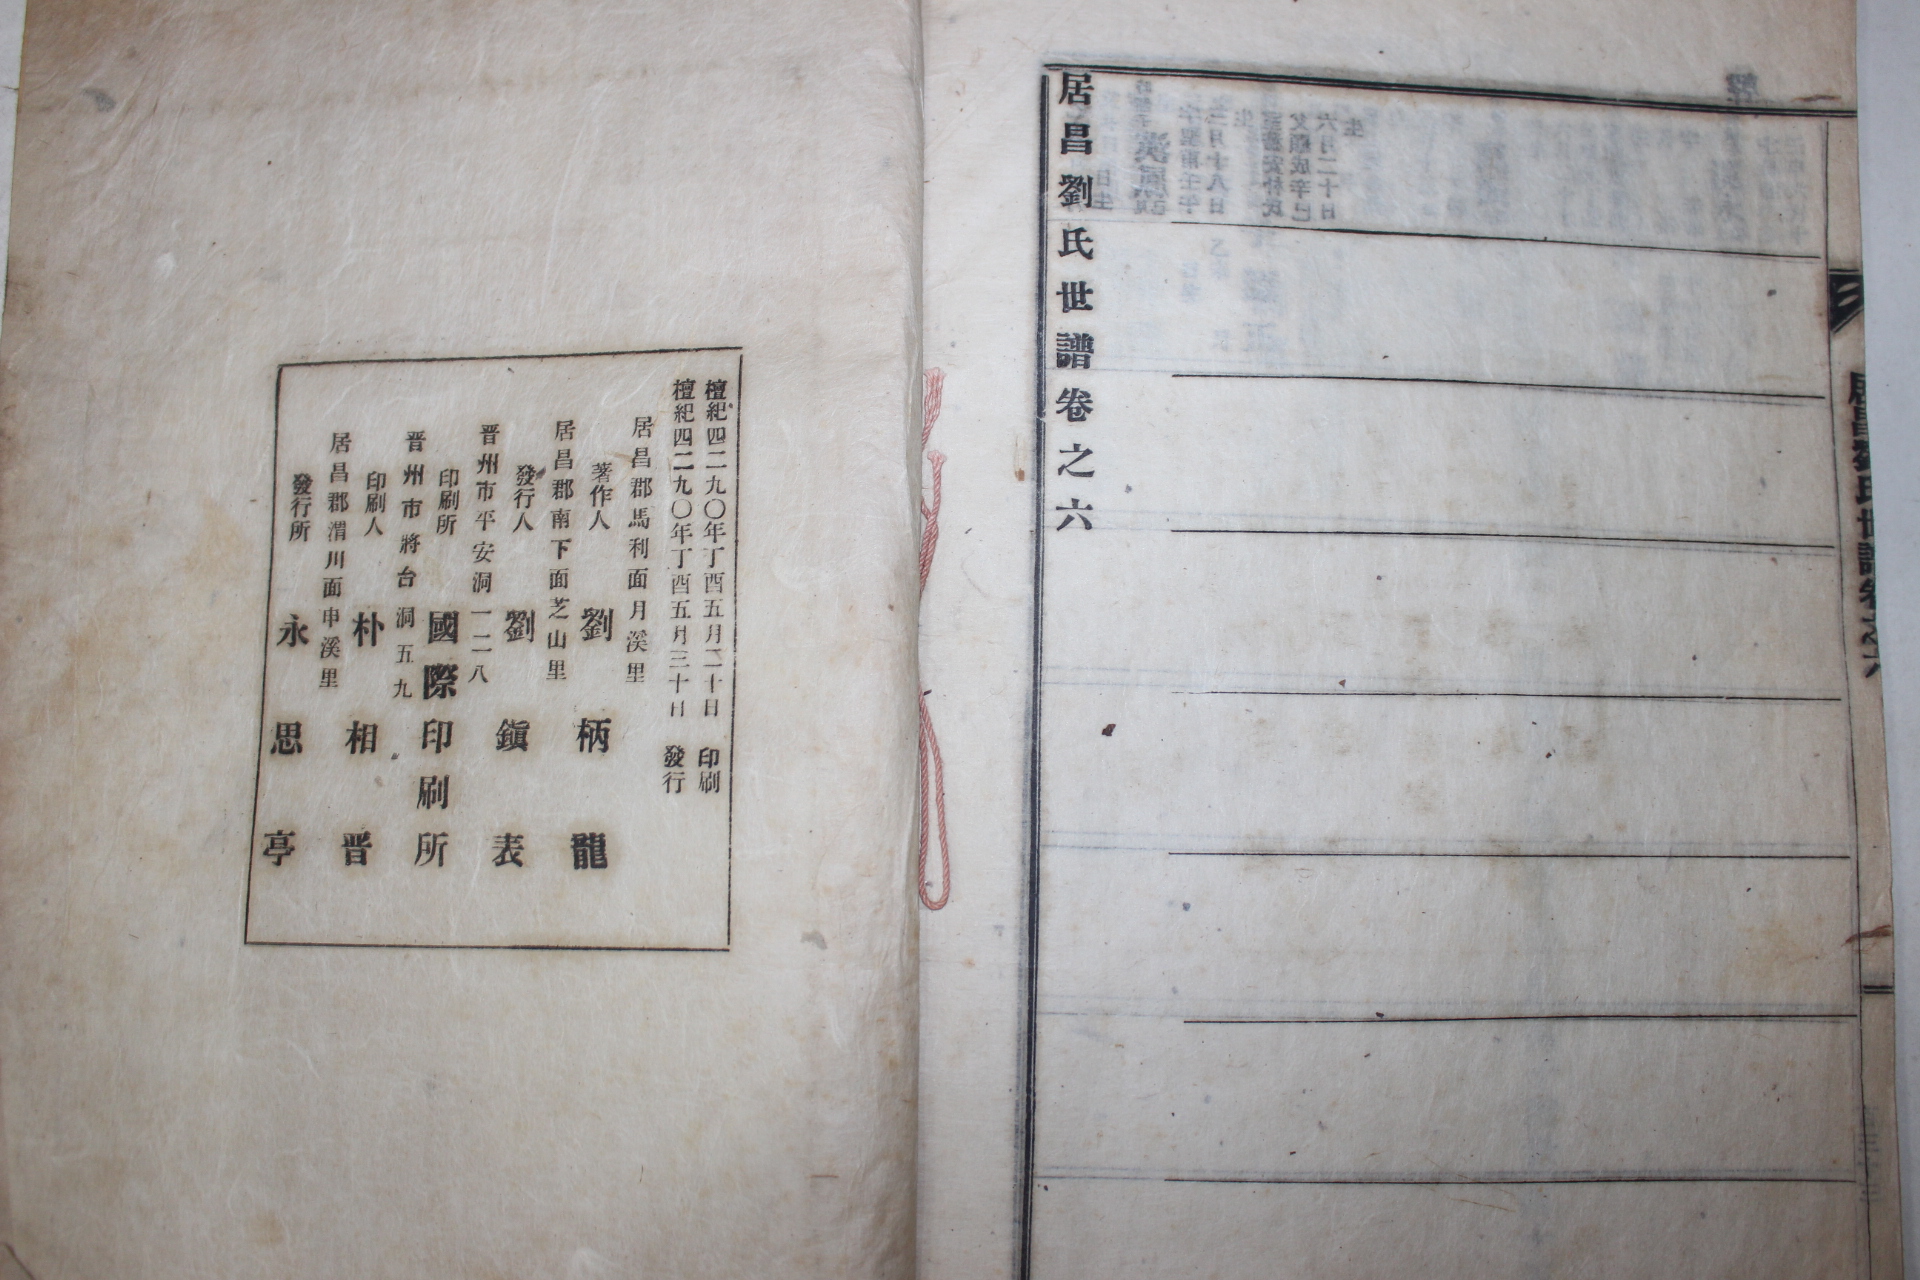 居昌劉氏世譜卷之六
居昌劉氏世譜卷之六
檀紀四二九〇年丁酉五月二十日 印刷
檀紀四二九〇年丁酉五月三十日 發行
居昌郡馬利面月溪里
著作人 劉柄龍
居昌郡南下面芝山里
發行人 劉鎭表
晋州市平安洞一二八
印刷所 國際印刷所
晋州市將台洞五九
印刷人 朴相晋
居昌郡渭川面申溪里
發行所 永思亭